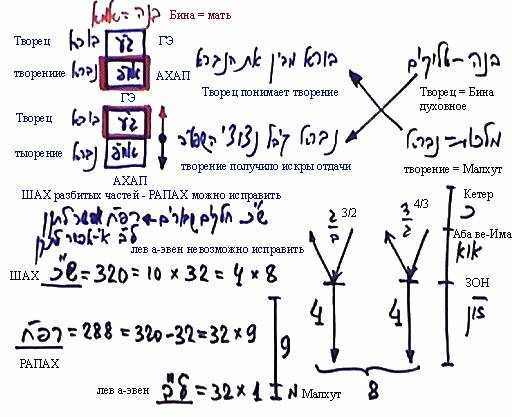 בנה = אמא Бина = мать
Творец בורא ג"ע ГЭ
творениие נברא אח"פ АХАП
בורא מבין את הנברא
בנה - אלוקים
Творец понимает творение
Творец = Бина духовное
ГЭ
Творец בורא ג"ע
тыорение נברא אח"פ
АХАП
נברא קיבל נצוצי השפעה
מלכות = נברא
творение получило искры отдачи
творение = Малхут
ШАХ разбитых частей - РАПАХ можно исправить
ש"כ חלקים שבורים רפ"ח אפשר לתקן
ל"ב אי-אפשר לתקן
лев а-эвен невозможно исправить
3/2 4/3
Кетер
כ
Аба ве-Има
או"א
ЗОН
זו"ן
ШАХ ש"כ = 320 = 10 × 32 = 4 × 8
4 4
רפ"ח = 288 = 320 - 32 = 32 × 9
9
РАПАХ
лев а-эвен ל"ב = 32 × 1 מ Малхут
8